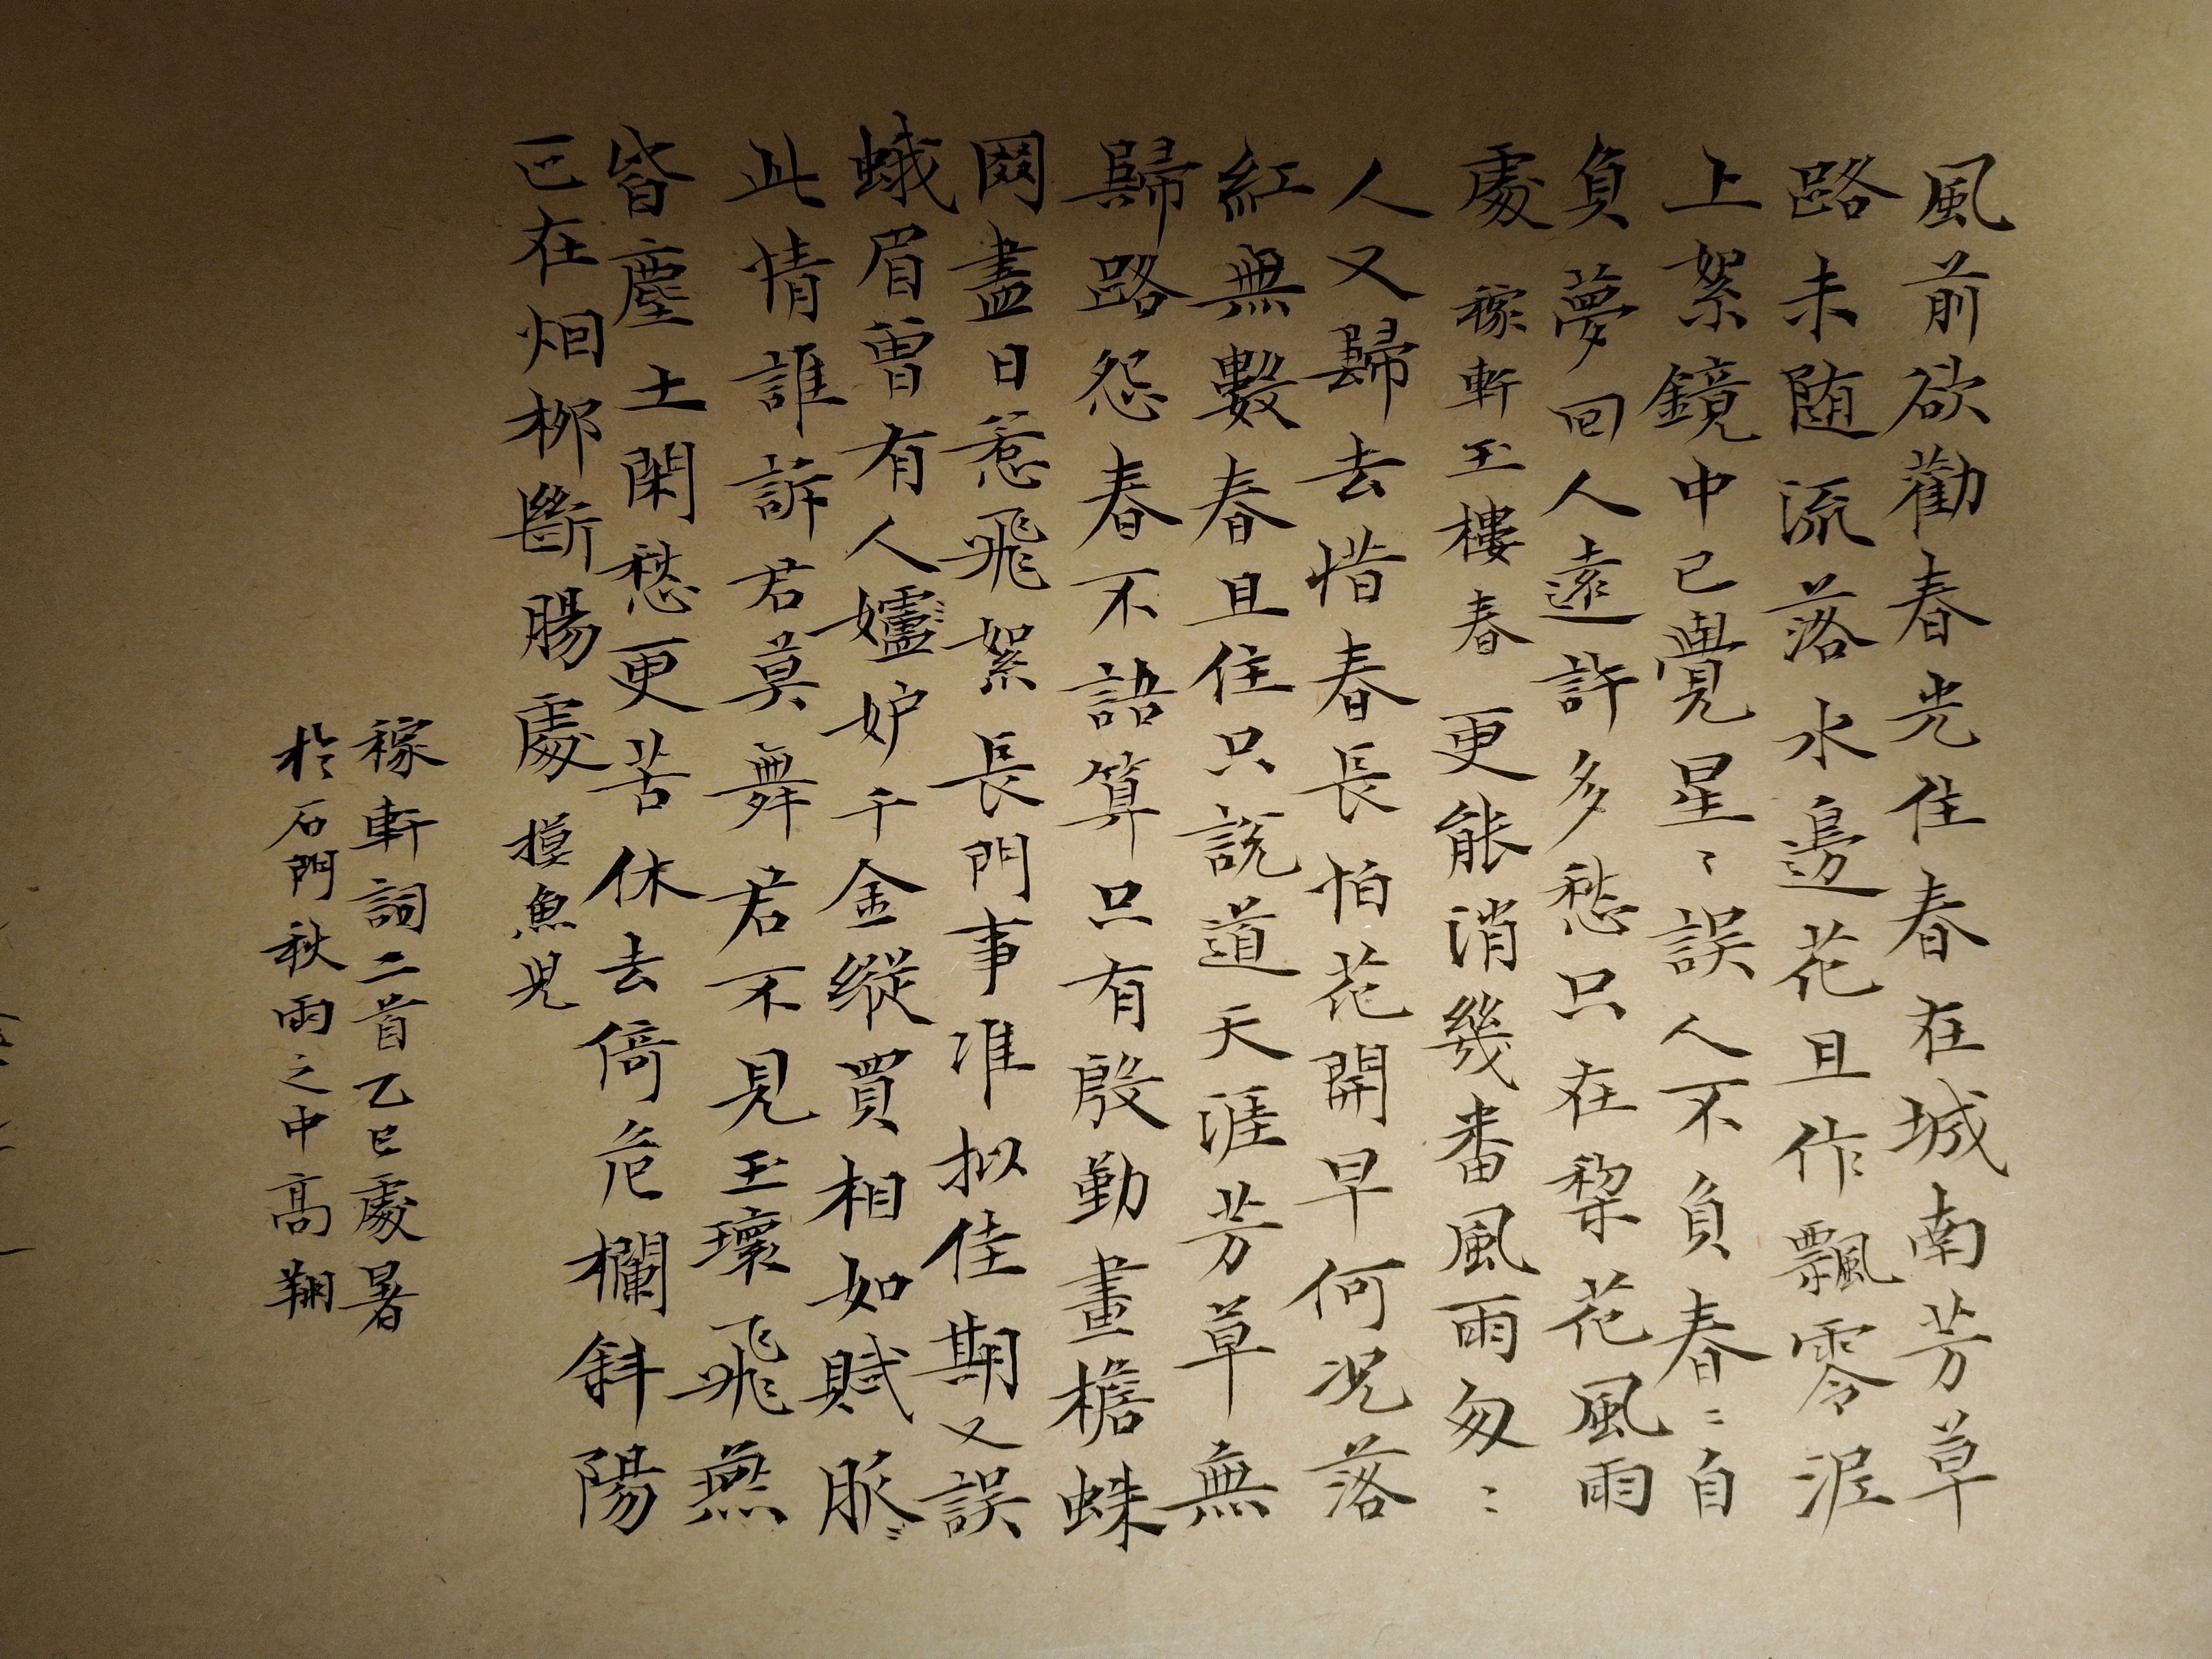 風前欲勸春光住春在城南芳草
路未随流落水邊花且作飄零泥
上絮鏡中已覺星〻誤人不負春〻自
負夢回人遠許多愁只在棃花風雨
處 稼軒玉樓春 更能消幾番風雨匆〻
人又歸去惜春長怕花開早何况落
紅無數春且住只說道天涯芳草無
歸路怨春不語算只有殷勤畫檐蛛
网盡日惹飛絮長門事准拟佳期又誤
蛾眉曾有人妒妒千金縱買相如賦脈〻
此情誰訴君莫舞君不見玉環飛燕
皆塵土閑愁更苦休去倚危欄斜陽
已在烟柳斷腸處 摸魚児
稼軒詞二首乙巳處暑
於石門秋雨之中高翔